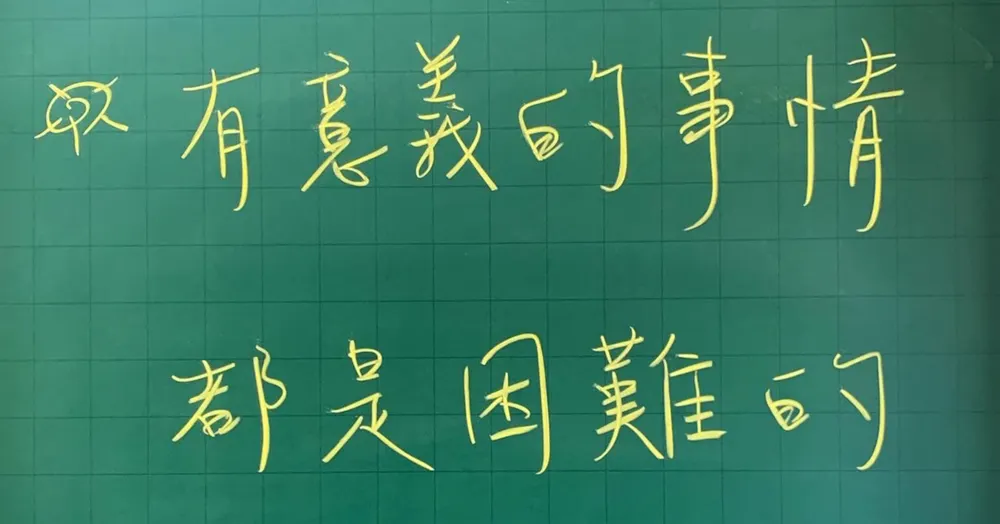 有意義的事情
都是困難的